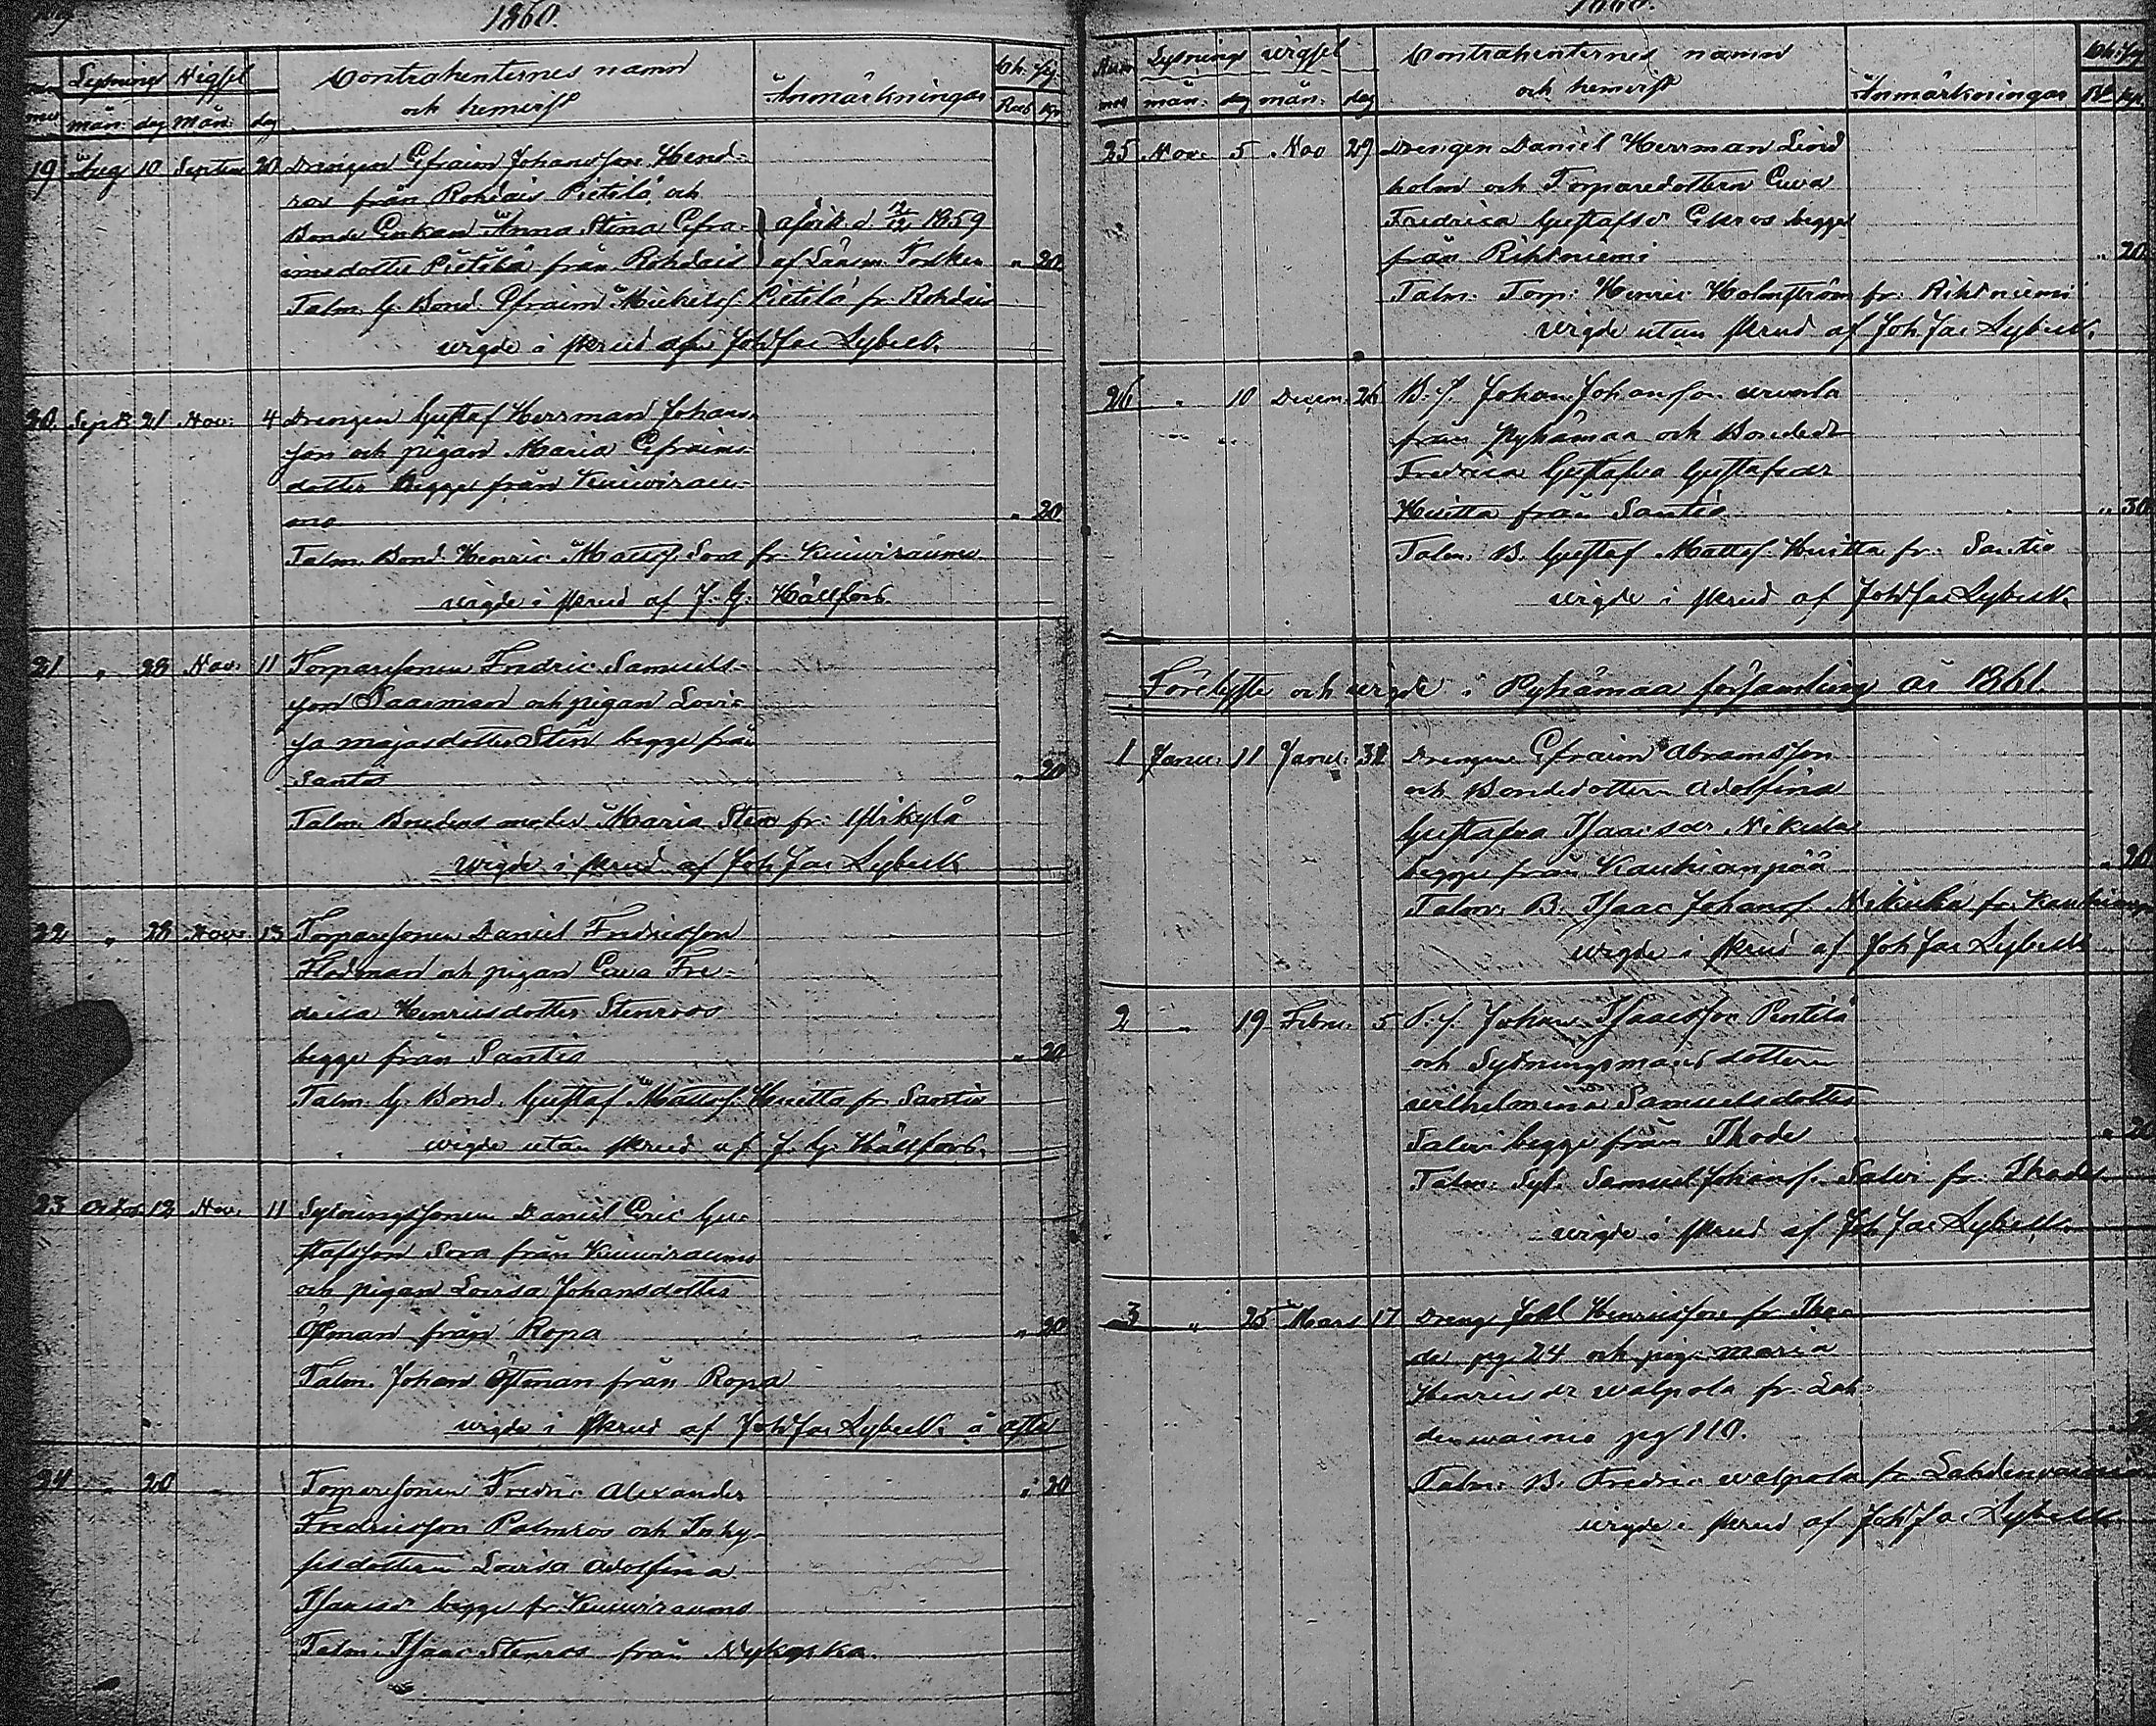 1860.
Lysning Vigsel Contrahenternes namn och hemvist Anmärkningar
mån. dag mån. dag Rub. Kop.
19 Aug 10 Septem 20 Drengen Efraim Johansson Hend-
ros från Rohdais Pietilä och
Bonde Enkan Anna Stina Efra- afvit. d. 12/2 1859
imsdotter Pietilä från Rohdais af Länsm. " 20
Talm. G. Bond. Efraim Michelss. Pietilä fr. Rohdais
vigde i skrud af Joh Jac Lybeck.
20 Sept 21 Nov. 4 Drengen Gustaf Herrman Johans-
son och pigan Maria Efraims-
dotter begge från Kuivirau-
mo " 20
Talm. Bond. Henric Mattss. Sora fr. Kuiviraumo
vigde i skrud af J. G. Hällfors.
21 " 23 Nov. 11 Torparesonen Fredric Samuels-
son Saarman och pigan Lovi-
sa Majasdotter Sten begge från
Santio " 20
Talm. Brudens moder Maria Sten fr. Ylikylä
vigde i skrud af Joh Jac Lybeck
22 " 23 Nov. 13 Torparesonen Daniel Fredricsson
Flodman och pigan Eva Fre-
drica Henricsdotter Stenroos
begge från Santio " 20
Talm. G. Bond. Gustaf Mattss. Huitta fr. Santio
vigde utan skrud af J. G. Hällfors.
23 Octob 12 Nov. 11 Sytningssonen Daniel Eric Gu-
stafsson Sora från Kuiviraumo
och pigan Lovisa Johansdotter
Öhman från Ropa " 20
Talm. Johan Öhman från Ropa
vigde i skrud af Joh Jac Lybeck.
24 " 20 Torparesonen Fredric Alexander " 20
Fredricsson Palmros och Inhy-
sesdottern Lovisa Adolfina
Isaacsdr begge fr. Kuiviraumo
Talm. Isaac Stenros från Nykoska.
1860.
Num mer Lysning vigsel Contrahenternes namn och hemvist Anmärkningar
mån. dag mån. dag
25 Nov. 5 Nov 29 Drengen Daniel Herrman Lind
holm och Torparedottern Eva
Fredrica Gustafsdr Enros begge
från Rihtniemi " 20
Talm. Torp. Henric Holmström fr. Rihtniemi
vigde utan skrud af Joh. Jac Lybeck.
26 " 10 Decem. 26 B. S. Johan Johansson
från Pyhämaa och Bondedr
Fredrica Gustafva Gustafsdr
Huitta från Santio " 30
Talm. B. Gustaf Mattss. Huitta fr. Santio
vigde i skrud af Joh Jac Lybeck.
Förelyste och vigde i Pyhämaa församling år 1861.
1 Janu. 11 Janu. 31 Drengen Efraim Abramsson
och Bondedottern Adolfina
Gustafva Isaacsdr Nikula
begge från Kaukianpää " 20
Talm. B. Isaac Johanss. Nikula fr. Kaukianp
vigde i skrud af Joh Jac Lybeck
2 " 19 Febru. 5 T. S. Johan Isaacsson Pentilä
och Sytningsmans dottern
Wilhelmina Samuelsdotter
Salvi begge från Ihode " 20
Talm. Syt. Samuel Johanss. Salvi fr. Ihode
vigde i skrud af Joh Jac Lybeck.
3 " 25 Mars 17 Dreng. Joel Henricsson fr. Iho-
de pg 24 och pig. Maria
Henricsdr Walpola fr. Lah-
denvainio pg 110.
Talm. B. Fredric Walpola fr. Lahdenvainio
vigde i skrud af Joh Jac Lybeck